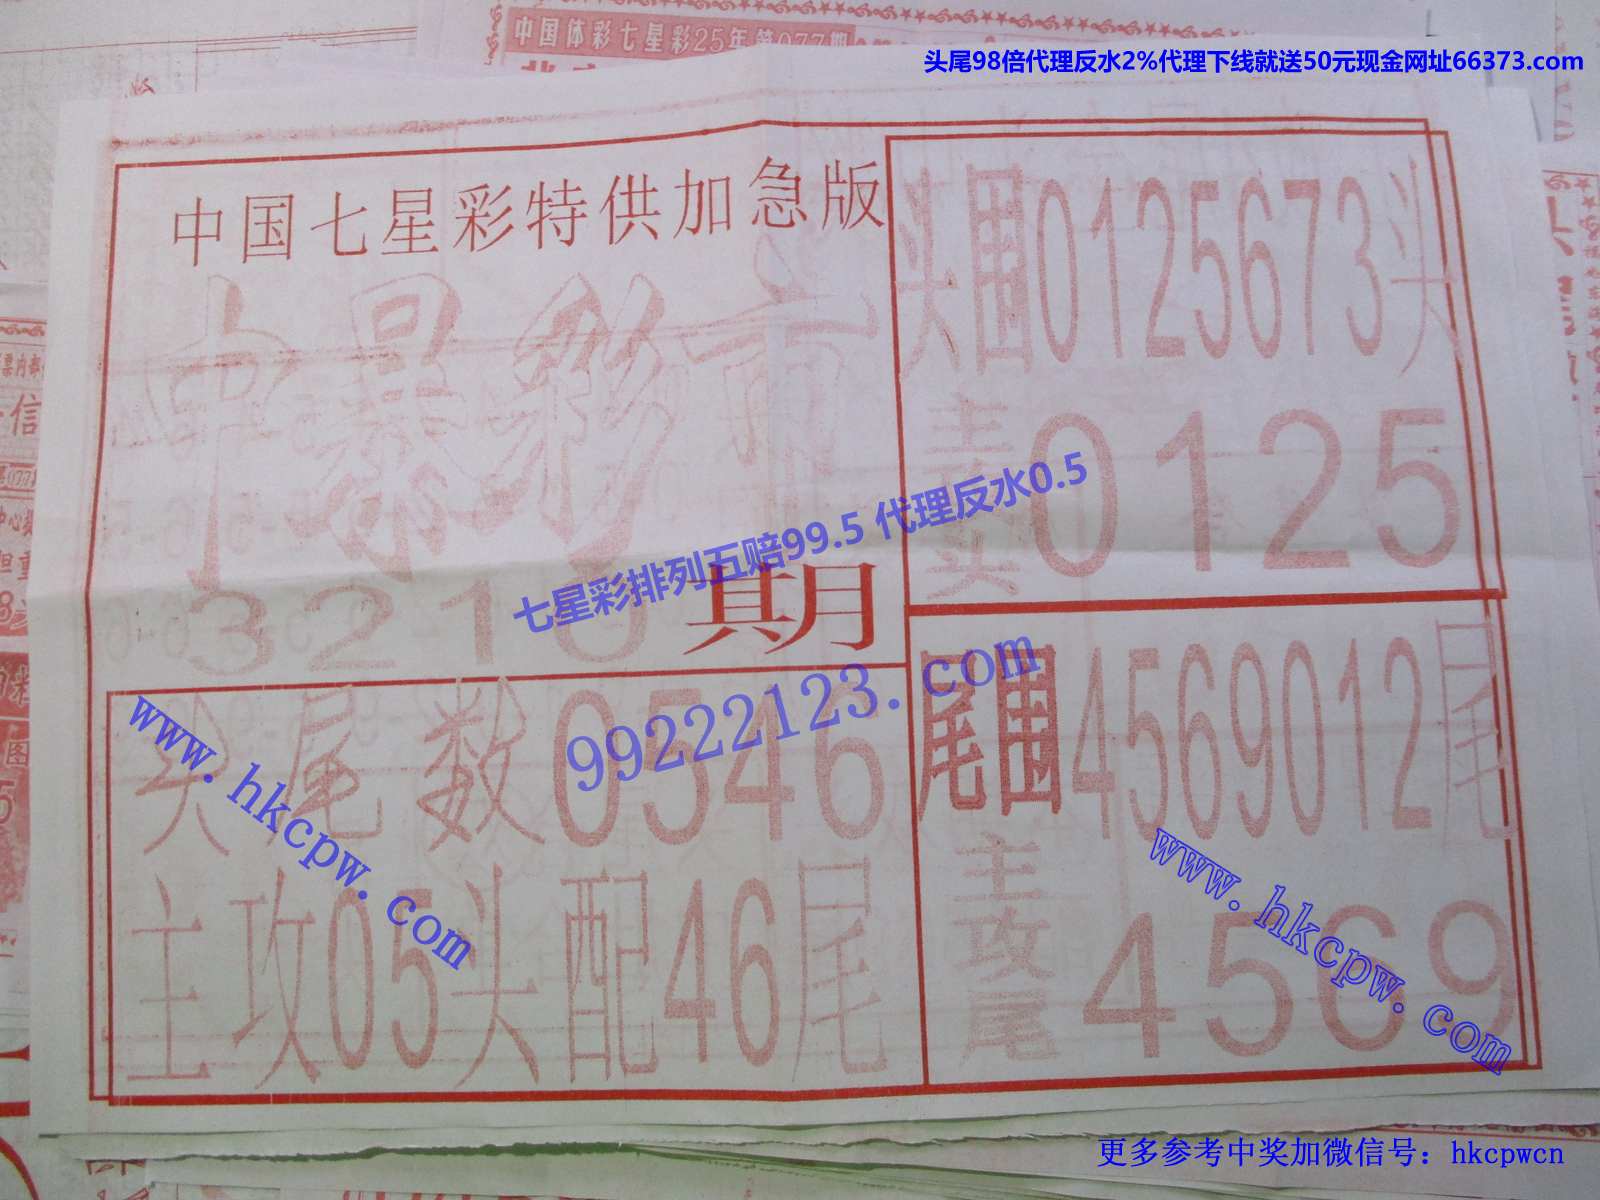 中国体彩七星彩25年第077期
头尾98倍代理反水2%代理下线就送50元现金网址66373.com
中国七星彩特供加急版
头围0125673头
主头0125
七星彩排列五赔99.5 代理反水0.5
3210期
99222123.com
尾围4569012尾
头尾数0546
www.hkcpw.com
主攻05头配46尾
www.hkcpw.com
主攻尾4569
更多参考中奖加微信号：hkcpwcn